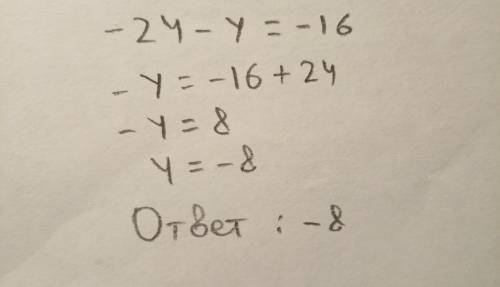 -24-y=-16
-y=-16+24
-y=8
y=-8
Ответ : -8